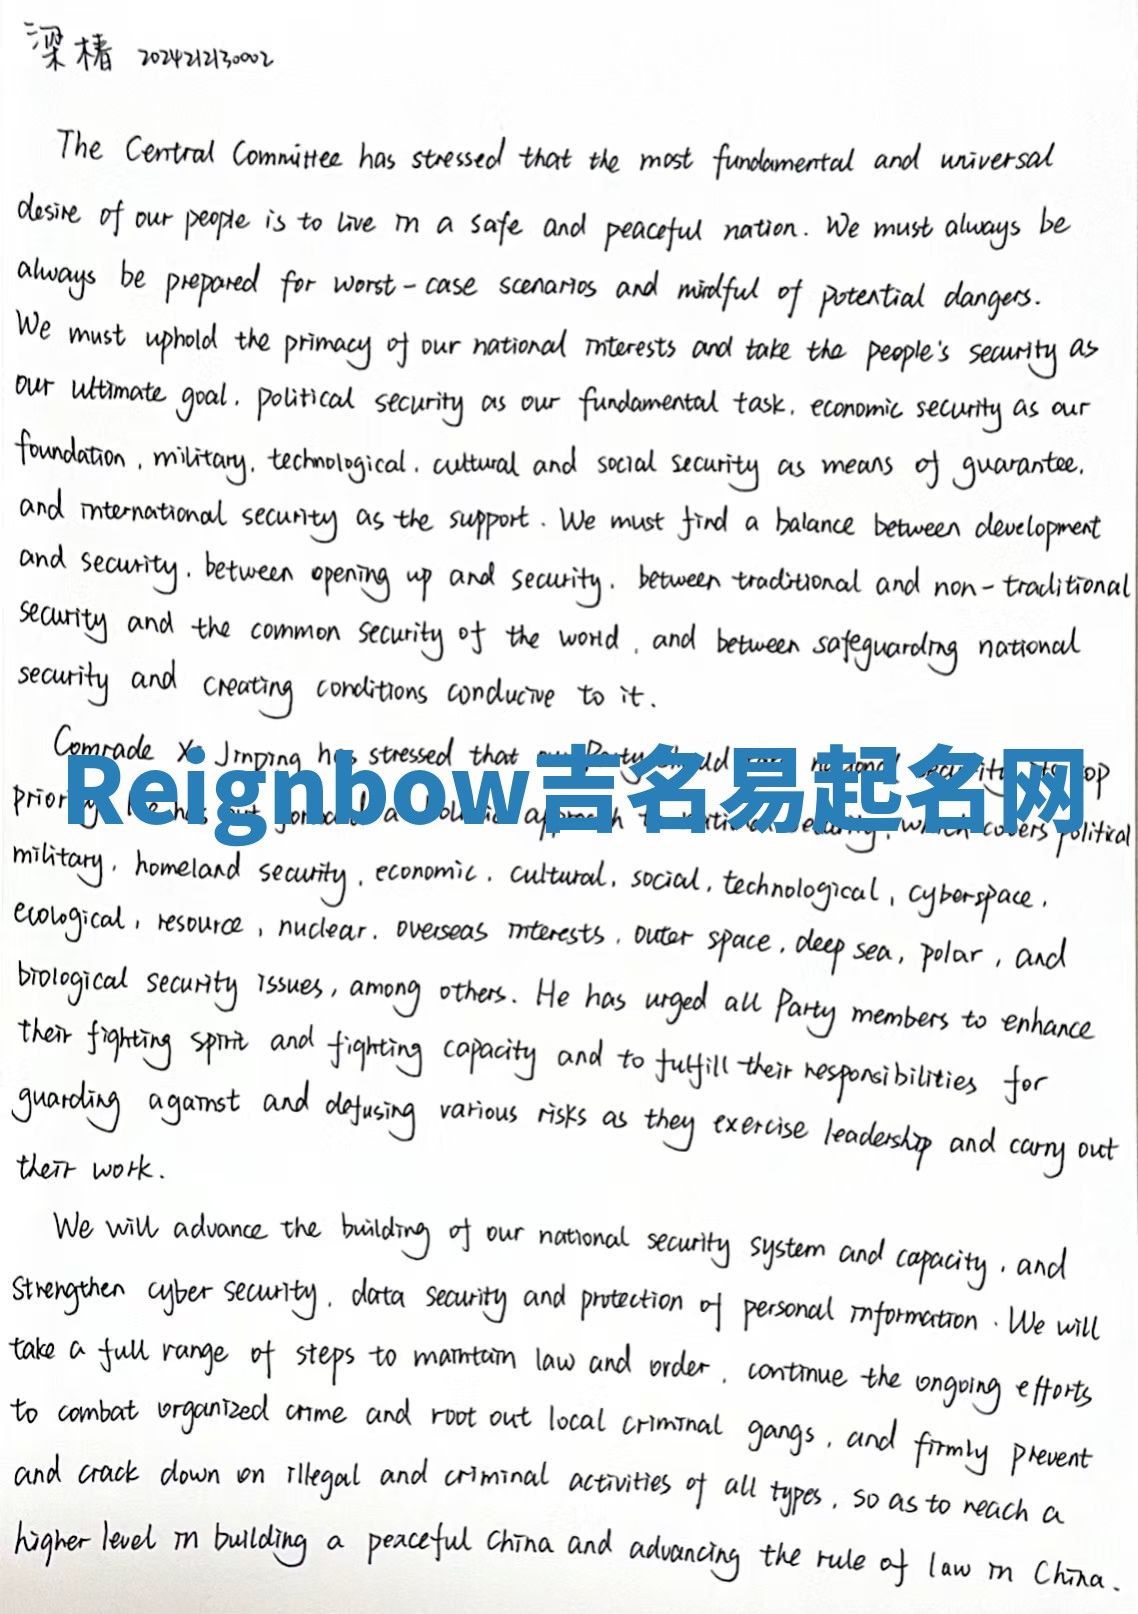 梁椿 2024212130002
The Central Committee has stressed that the most fundamental and universal
desire of our people is to live in a safe and peaceful nation. We must always be
always be prepared for worst-case scenarios and mindful of potential dangers.
We must uphold the primacy of our national interests and take the people's security as
our ultimate goal, political security as our fundamental task, economic security as our
foundation, military, technological, cultural and social security as means of guarantee,
and international security as the support. We must find a balance between development
and security, between opening up and security, between traditional and non-traditional
security and the common security of the world, and between safeguarding national
security and creating conditions conducive to it.
Comrade Xi Jinping has stressed that our Party should national security its top
Reignbow吉名易起名网
priority. He has put forward a holistic approach to national security, which covers political
military, homeland security, economic, cultural, social, technological, cyberspace,
ecological, resource, nuclear, overseas interests, outer space, deep sea, polar, and
biological security issues, among others. He has urged all Party members to enhance
their fighting spirit and fighting capacity and to fulfill their responsibilities for
guarding against and defusing various risks as they exercise leadership and carry out
their work.
We will advance the building of our national security system and capacity, and
strengthen cyber security, data security and protection of personal information. We will
take a full range of steps to maintain law and order, continue the ongoing efforts
to combat organized crime and root out local criminal gangs, and firmly prevent
and crack down on illegal and criminal activities of all types, so as to reach a
higher level in building a peaceful China and advancing the rule of law in China.